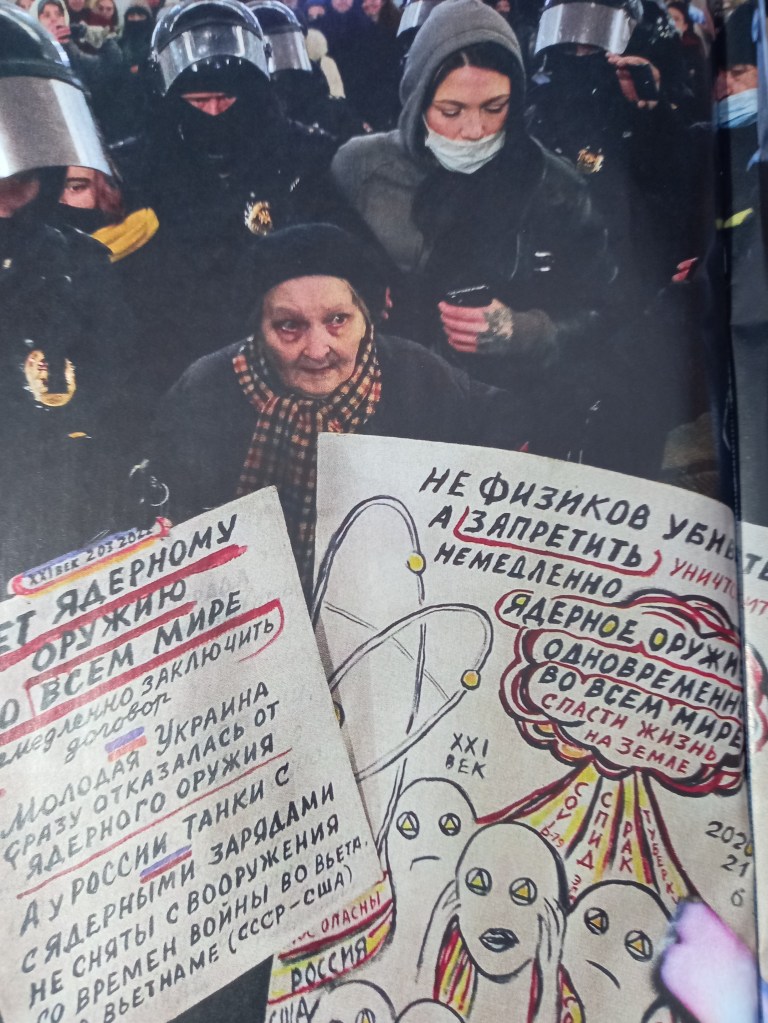 XXI ВЕК 2 03 2022
ЕТ ЯДЕРНОМУ
ОРУЖИЮ
О ВСЕМ МИРЕ
ЕМЕДЛЕННО ЗАКЛЮЧИТЬ
ДОГОВОР
МОЛОДАЯ УКРАИНА
СРАЗУ ОТКАЗАЛАСЬ ОТ
ЯДЕРНОГО ОРУЖИЯ
А У РОССИИ ТАНКИ С
С ЯДЕРНЫМИ ЗАРЯДАМИ
НЕ СНЯТЫ С ВООРУЖЕНИЯ
СО ВРЕМЕН ВОЙНЫ ВО ВЬЕТА.
ВЬЕТНАМЕ (СССР-США)
НЕ ФИЗИКОВ УБИВАТЬ
А ЗАПРЕТИТЬ
НЕМЕДЛЕННО
ЯДЕРНОЕ ОРУЖИ
ОДНОВРЕМЕНН
ВО ВСЕМ МИРЕ
СПАСТИ ЖИЗНЬ
НА ЗЕМЛЕ
XXI
ВЕК
СПИД
РАК
ТУБЕРКУ
21
6
ОПАСНЫ
РОССИЯ
США